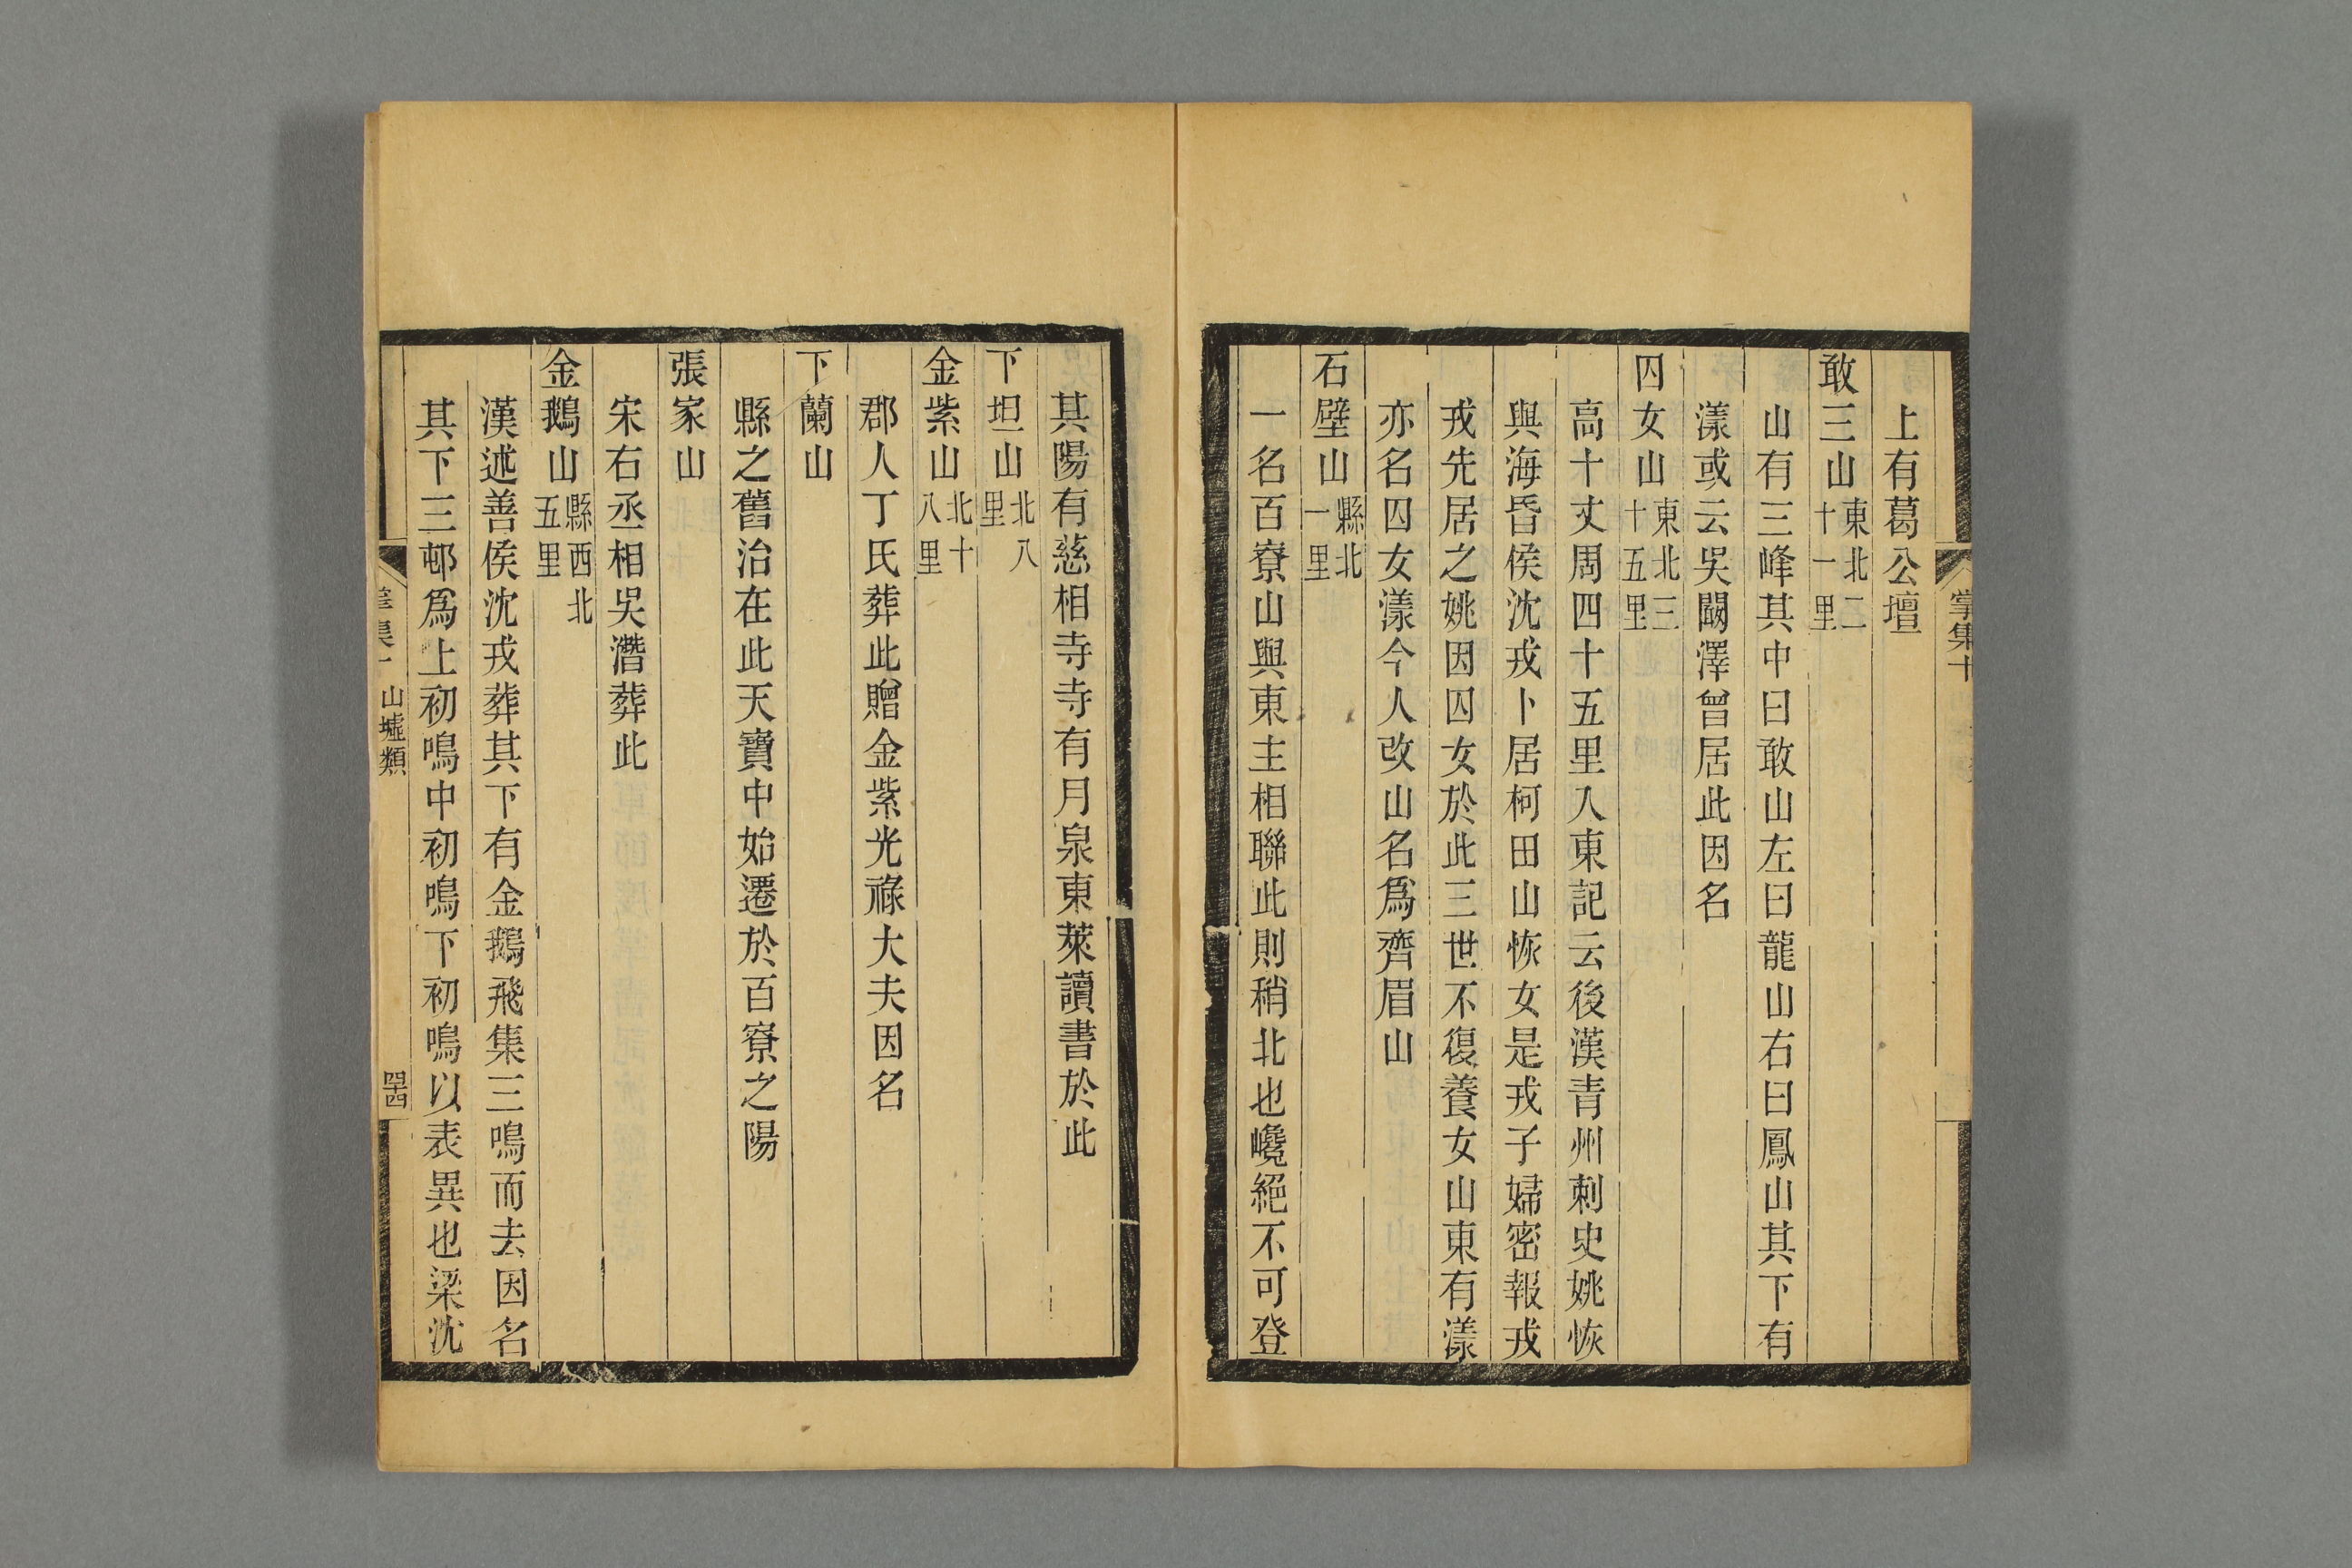 上有葛公壇
敢三山東北二十一里
山有三峰其中曰敢山左曰龍山右曰鳳山其下有
漾或云吳闞澤曾居此因名
囚女山東北三十五里
高十丈周四十五里入東記云後漢青州刺史姚恢
與海昏侯沈戎卜居柯田山恢女是戎子婦密報戎
戎先居之姚因囚女於此三世不復養女山東有漾
亦名囚女漾今人改山名爲齊眉山
石壁山縣北一里
一名百寮山與東主相聯此則稍北也巉絕不可登
其陽有慈相寺寺有月泉東萊讀書於此
下坦山北八里
金紫山北十八里
郡人丁氏葬此贈金紫光祿大夫因名
下蘭山
縣之舊治在此天寶中始遷於百寮之陽
張家山
宋右丞相吳潛葬此
金鵝山縣西北五里
漢述善侯沈戎葬其下有金鵝飛集三鳴而去因名
其下三邨爲上初鳴中初鳴下初鳴以表異也梁沈
掌集 山墟類 四十四